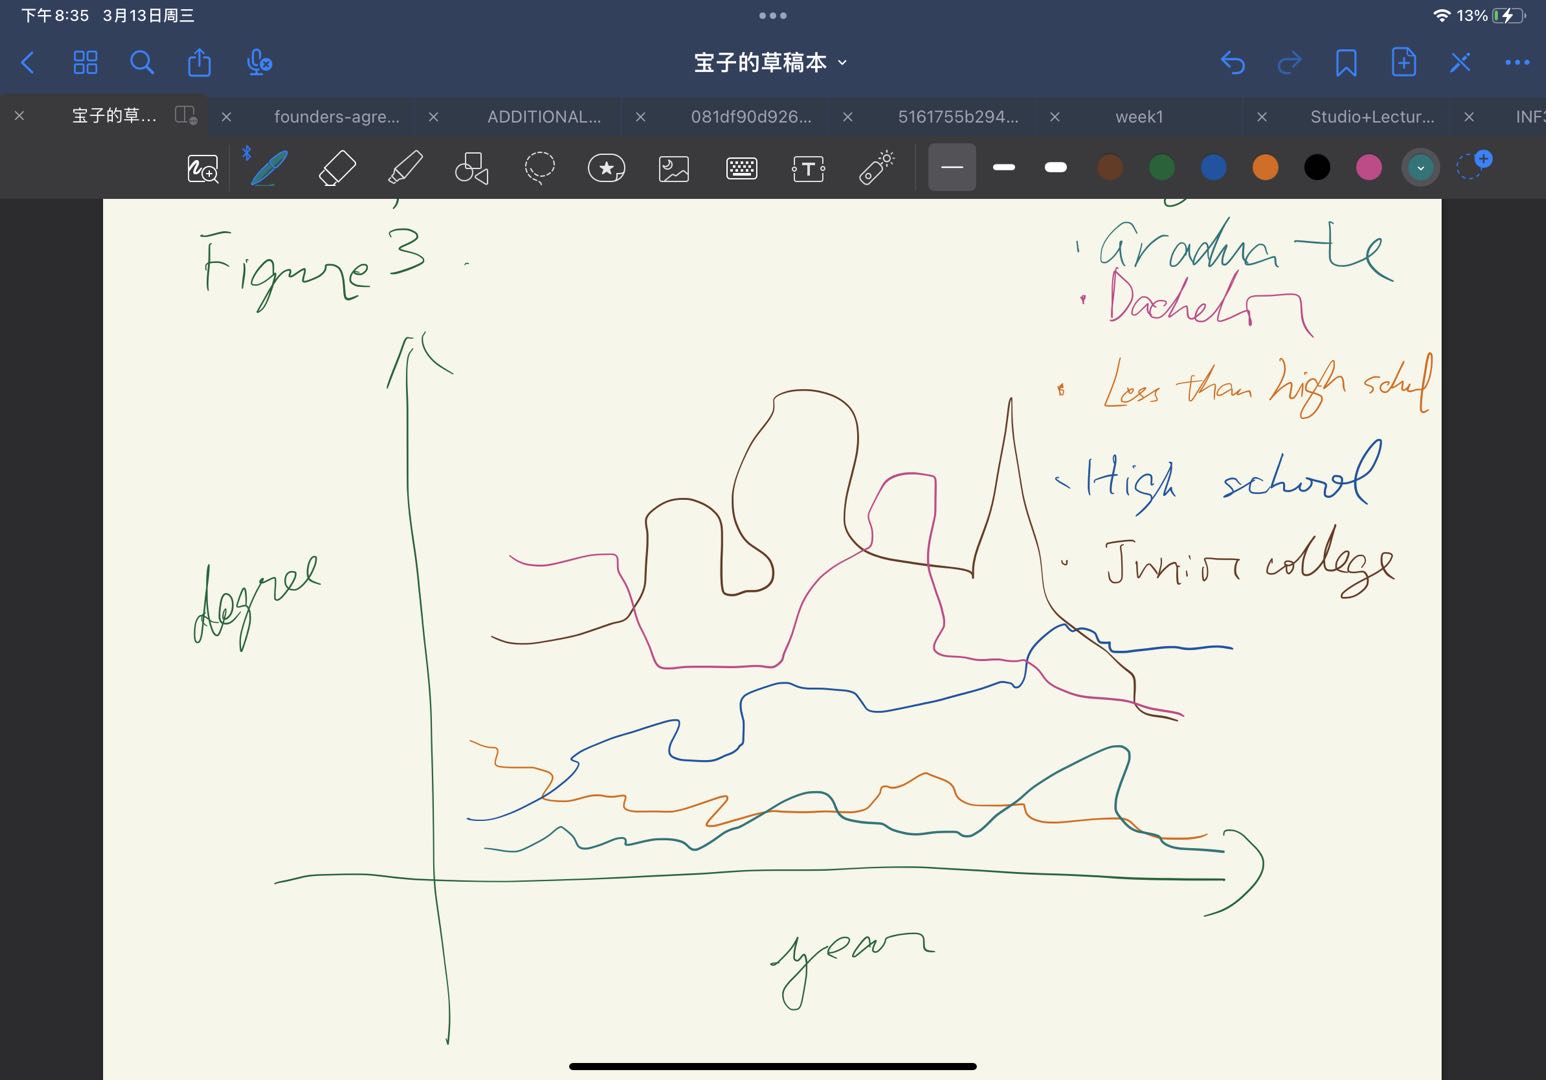 下午8:35 3月13日周三
13%
宝子的草稿本
宝子的草...
founders-agre...
ADDITIONAL...
081df90d926...
5161755b294...
week1
Studio+Lectur...
INF3
T
Figure 3
Graduate
Bachelor
Less than high school
High school
Junior college
degree
year